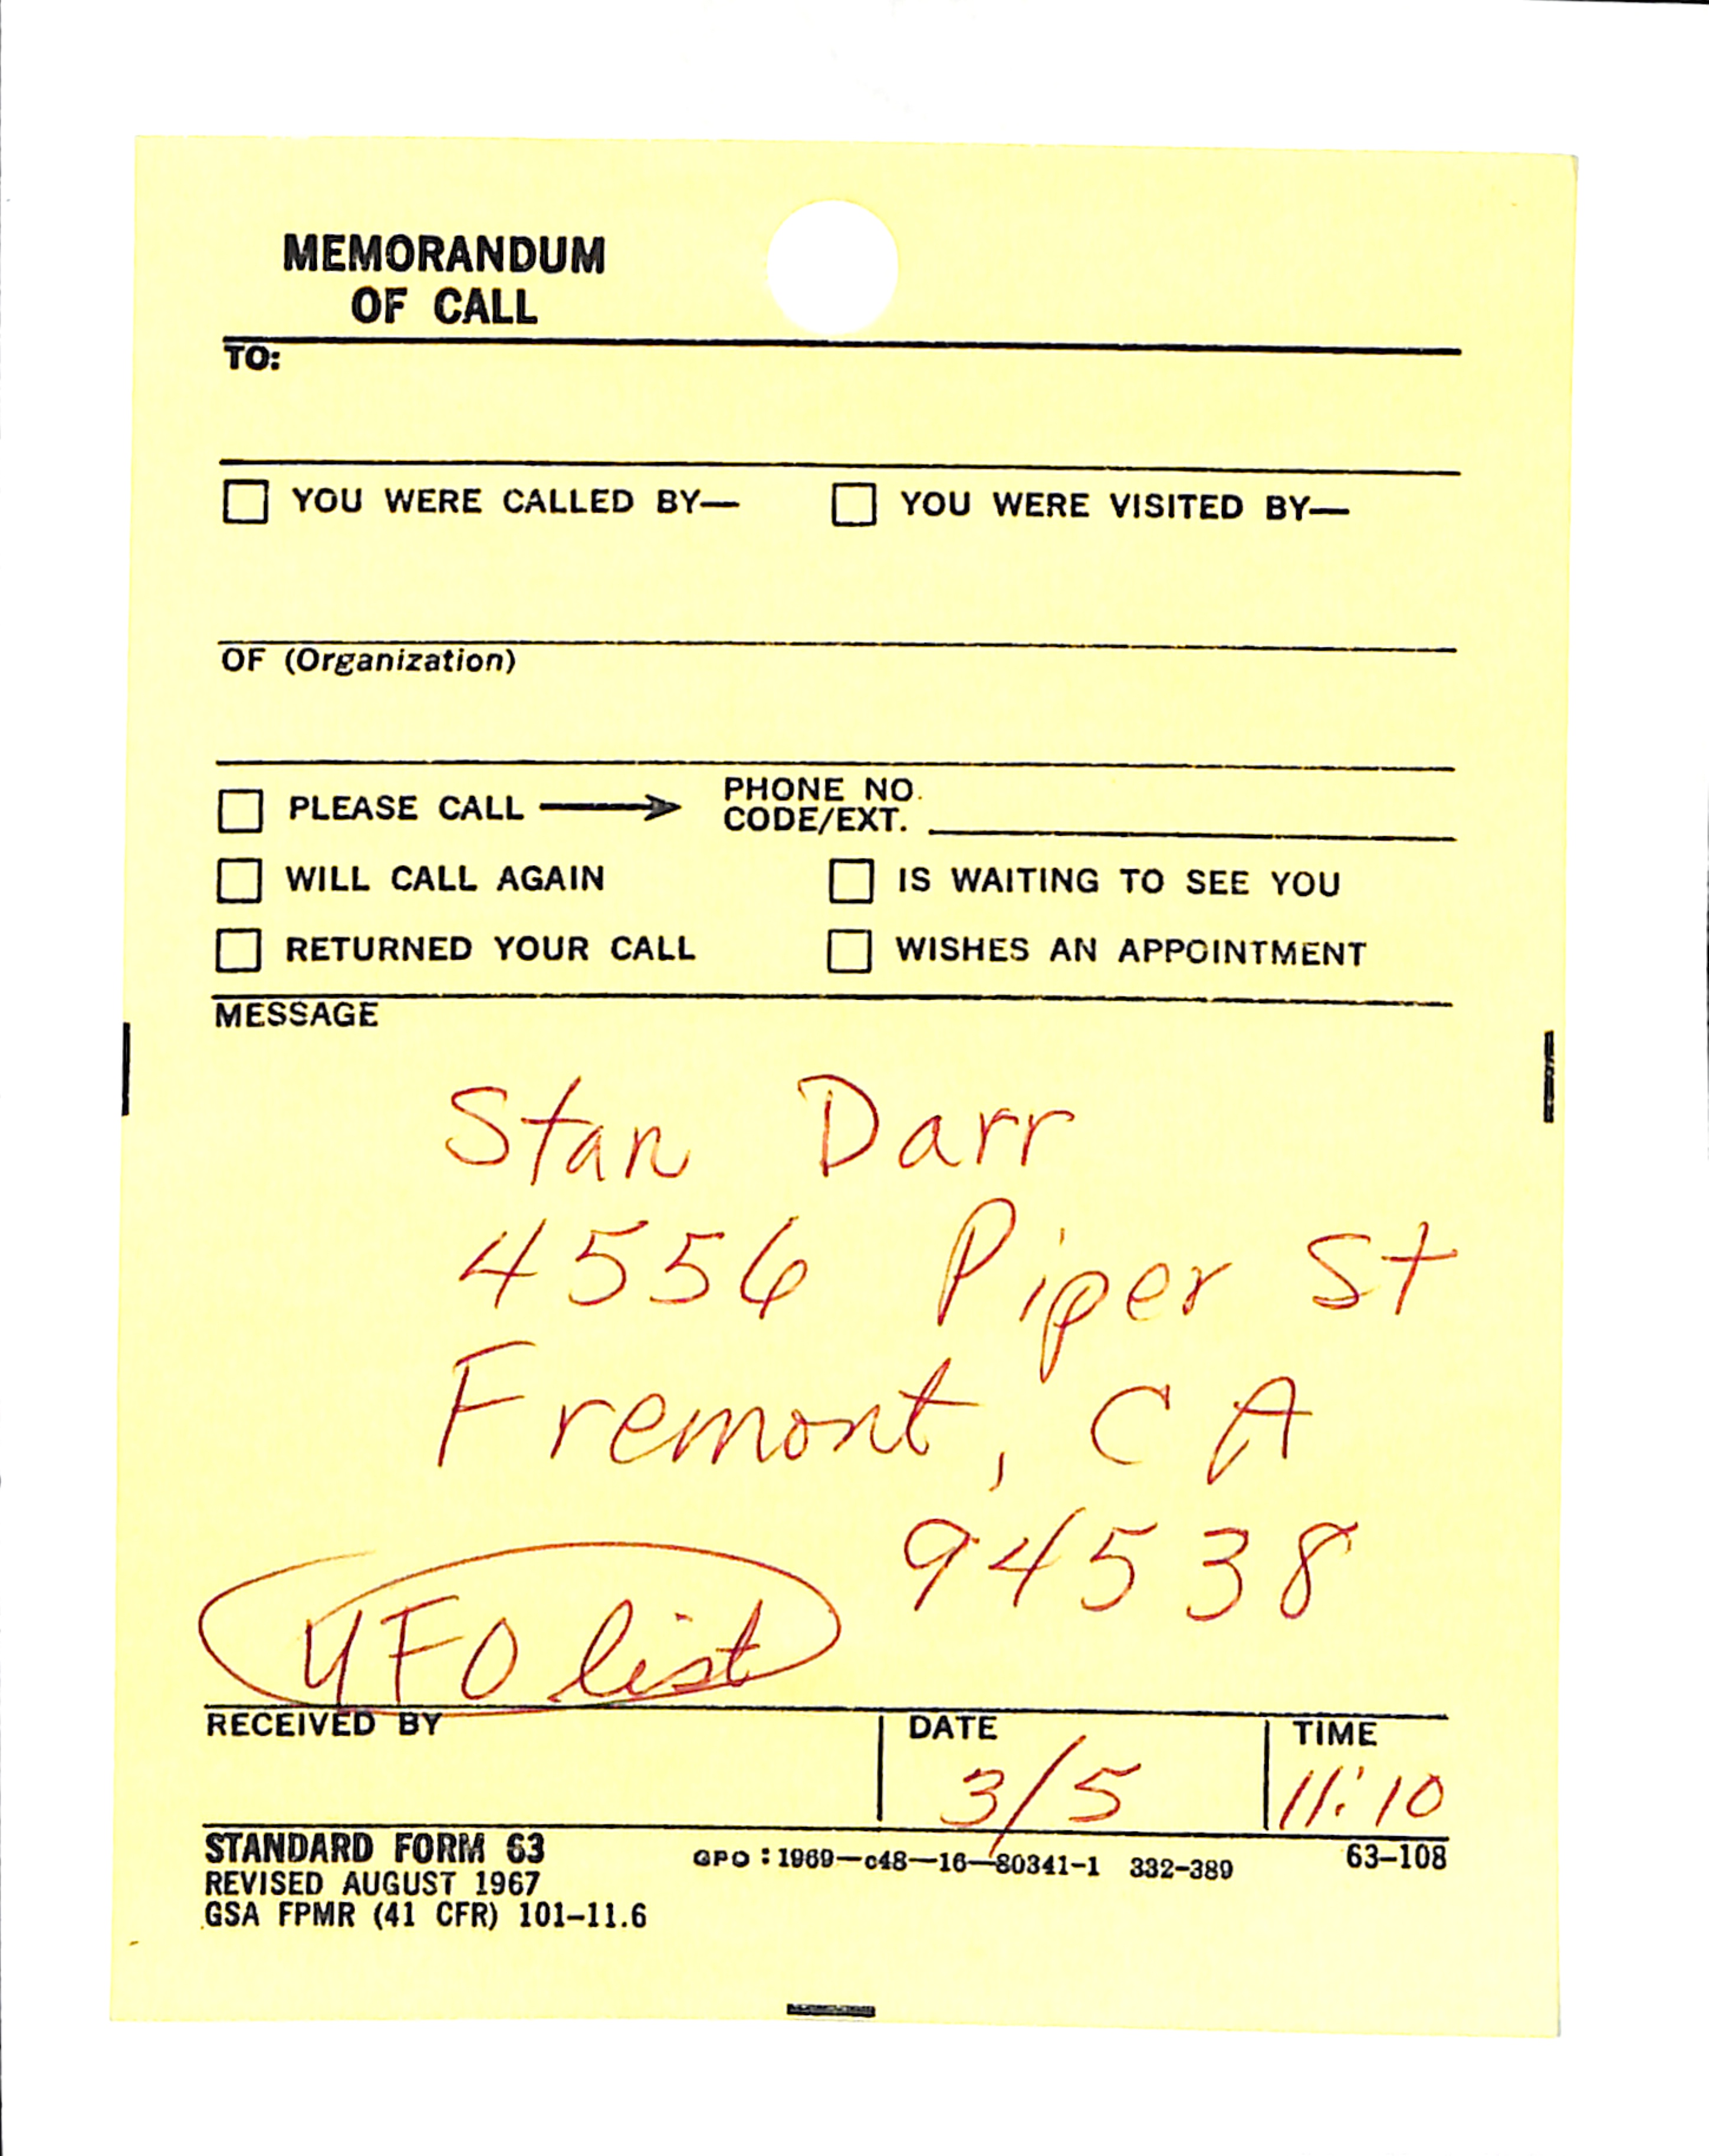 MEMORANDUM
OF CALL
TO:
YOU WERE CALLED BY— YOU WERE VISITED BY—
OF (Organization)
PLEASE CALL → PHONE NO.
CODE/EXT.
WILL CALL AGAIN IS WAITING TO SEE YOU
RETURNED YOUR CALL WISHES AN APPOINTMENT
MESSAGE
Stan Darr
4556 Piper St
Fremont, CA
94538
UFO list
RECEIVED BY DATE TIME
3/5 11:10
STANDARD FORM 63 GPO : 1969—c48—16—80341-1 332-389 63-108
REVISED AUGUST 1967
GSA FPMR (41 CFR) 101-11.6